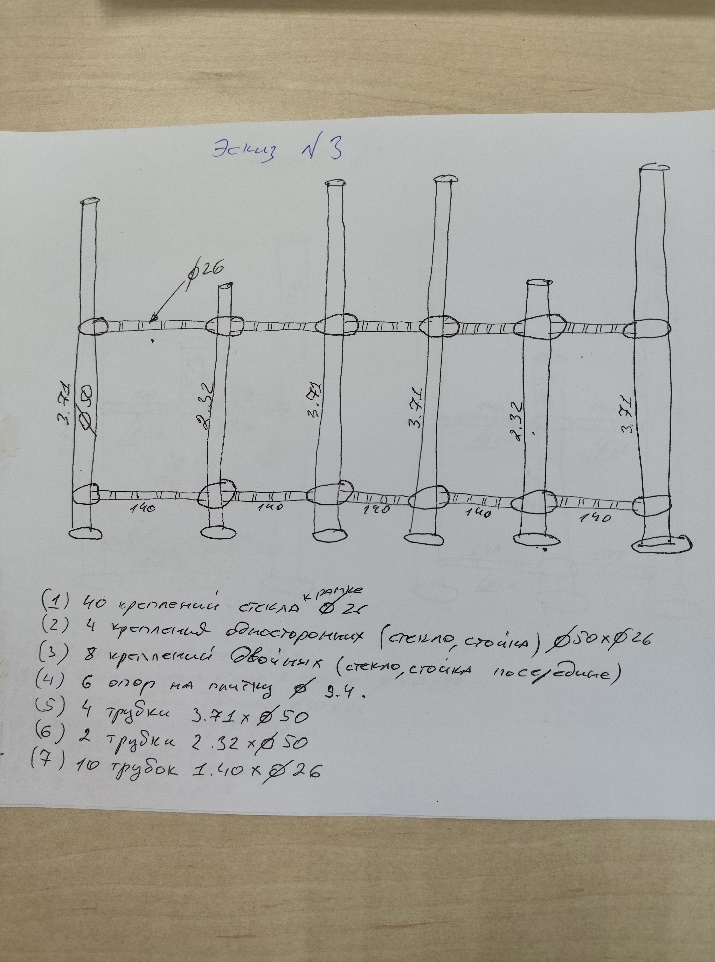 Эскиз N3
ϕ26
3.71
ϕ50
2.32
3.71
3.71
2.32
3.71
140
140
140
140
140
(1) 40 креплений стекла к рамке ϕ 26
(2) 4 крепления односторонних (стекло, стойка) ϕ50xϕ26
(3) 8 креплений двойных (стекло, стойка посередине)
(4) 6 опор на плитку ϕ 9.4.
(5) 4 трубки 3.71xϕ50
(6) 2 трубки 2.32xϕ50
(7) 10 трубок 1.40xϕ26